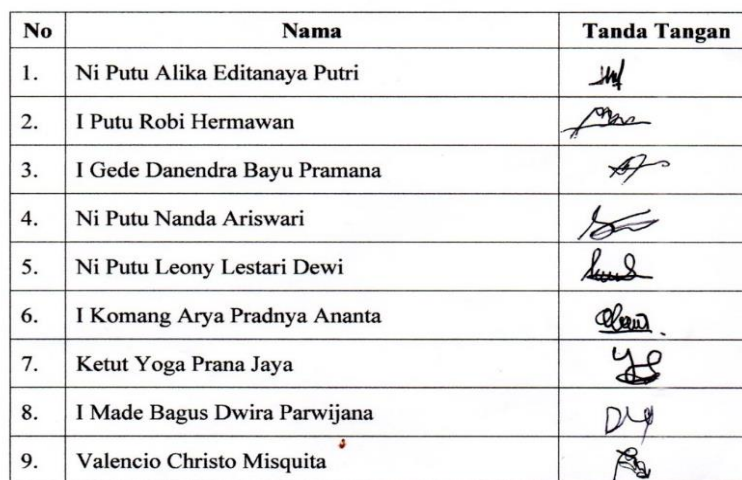 No Nama Tanda Tangan
1. Ni Putu Alika Editanaya Putri
2. I Putu Robi Hermawan
3. I Gede Danendra Bayu Pramana
4. Ni Putu Nanda Ariswari
5. Ni Putu Leony Lestari Dewi
6. I Komang Arya Pradnya Ananta
7. Ketut Yoga Prana Jaya
8. I Made Bagus Dwira Parwijana
9. Valencio Christo Misquita